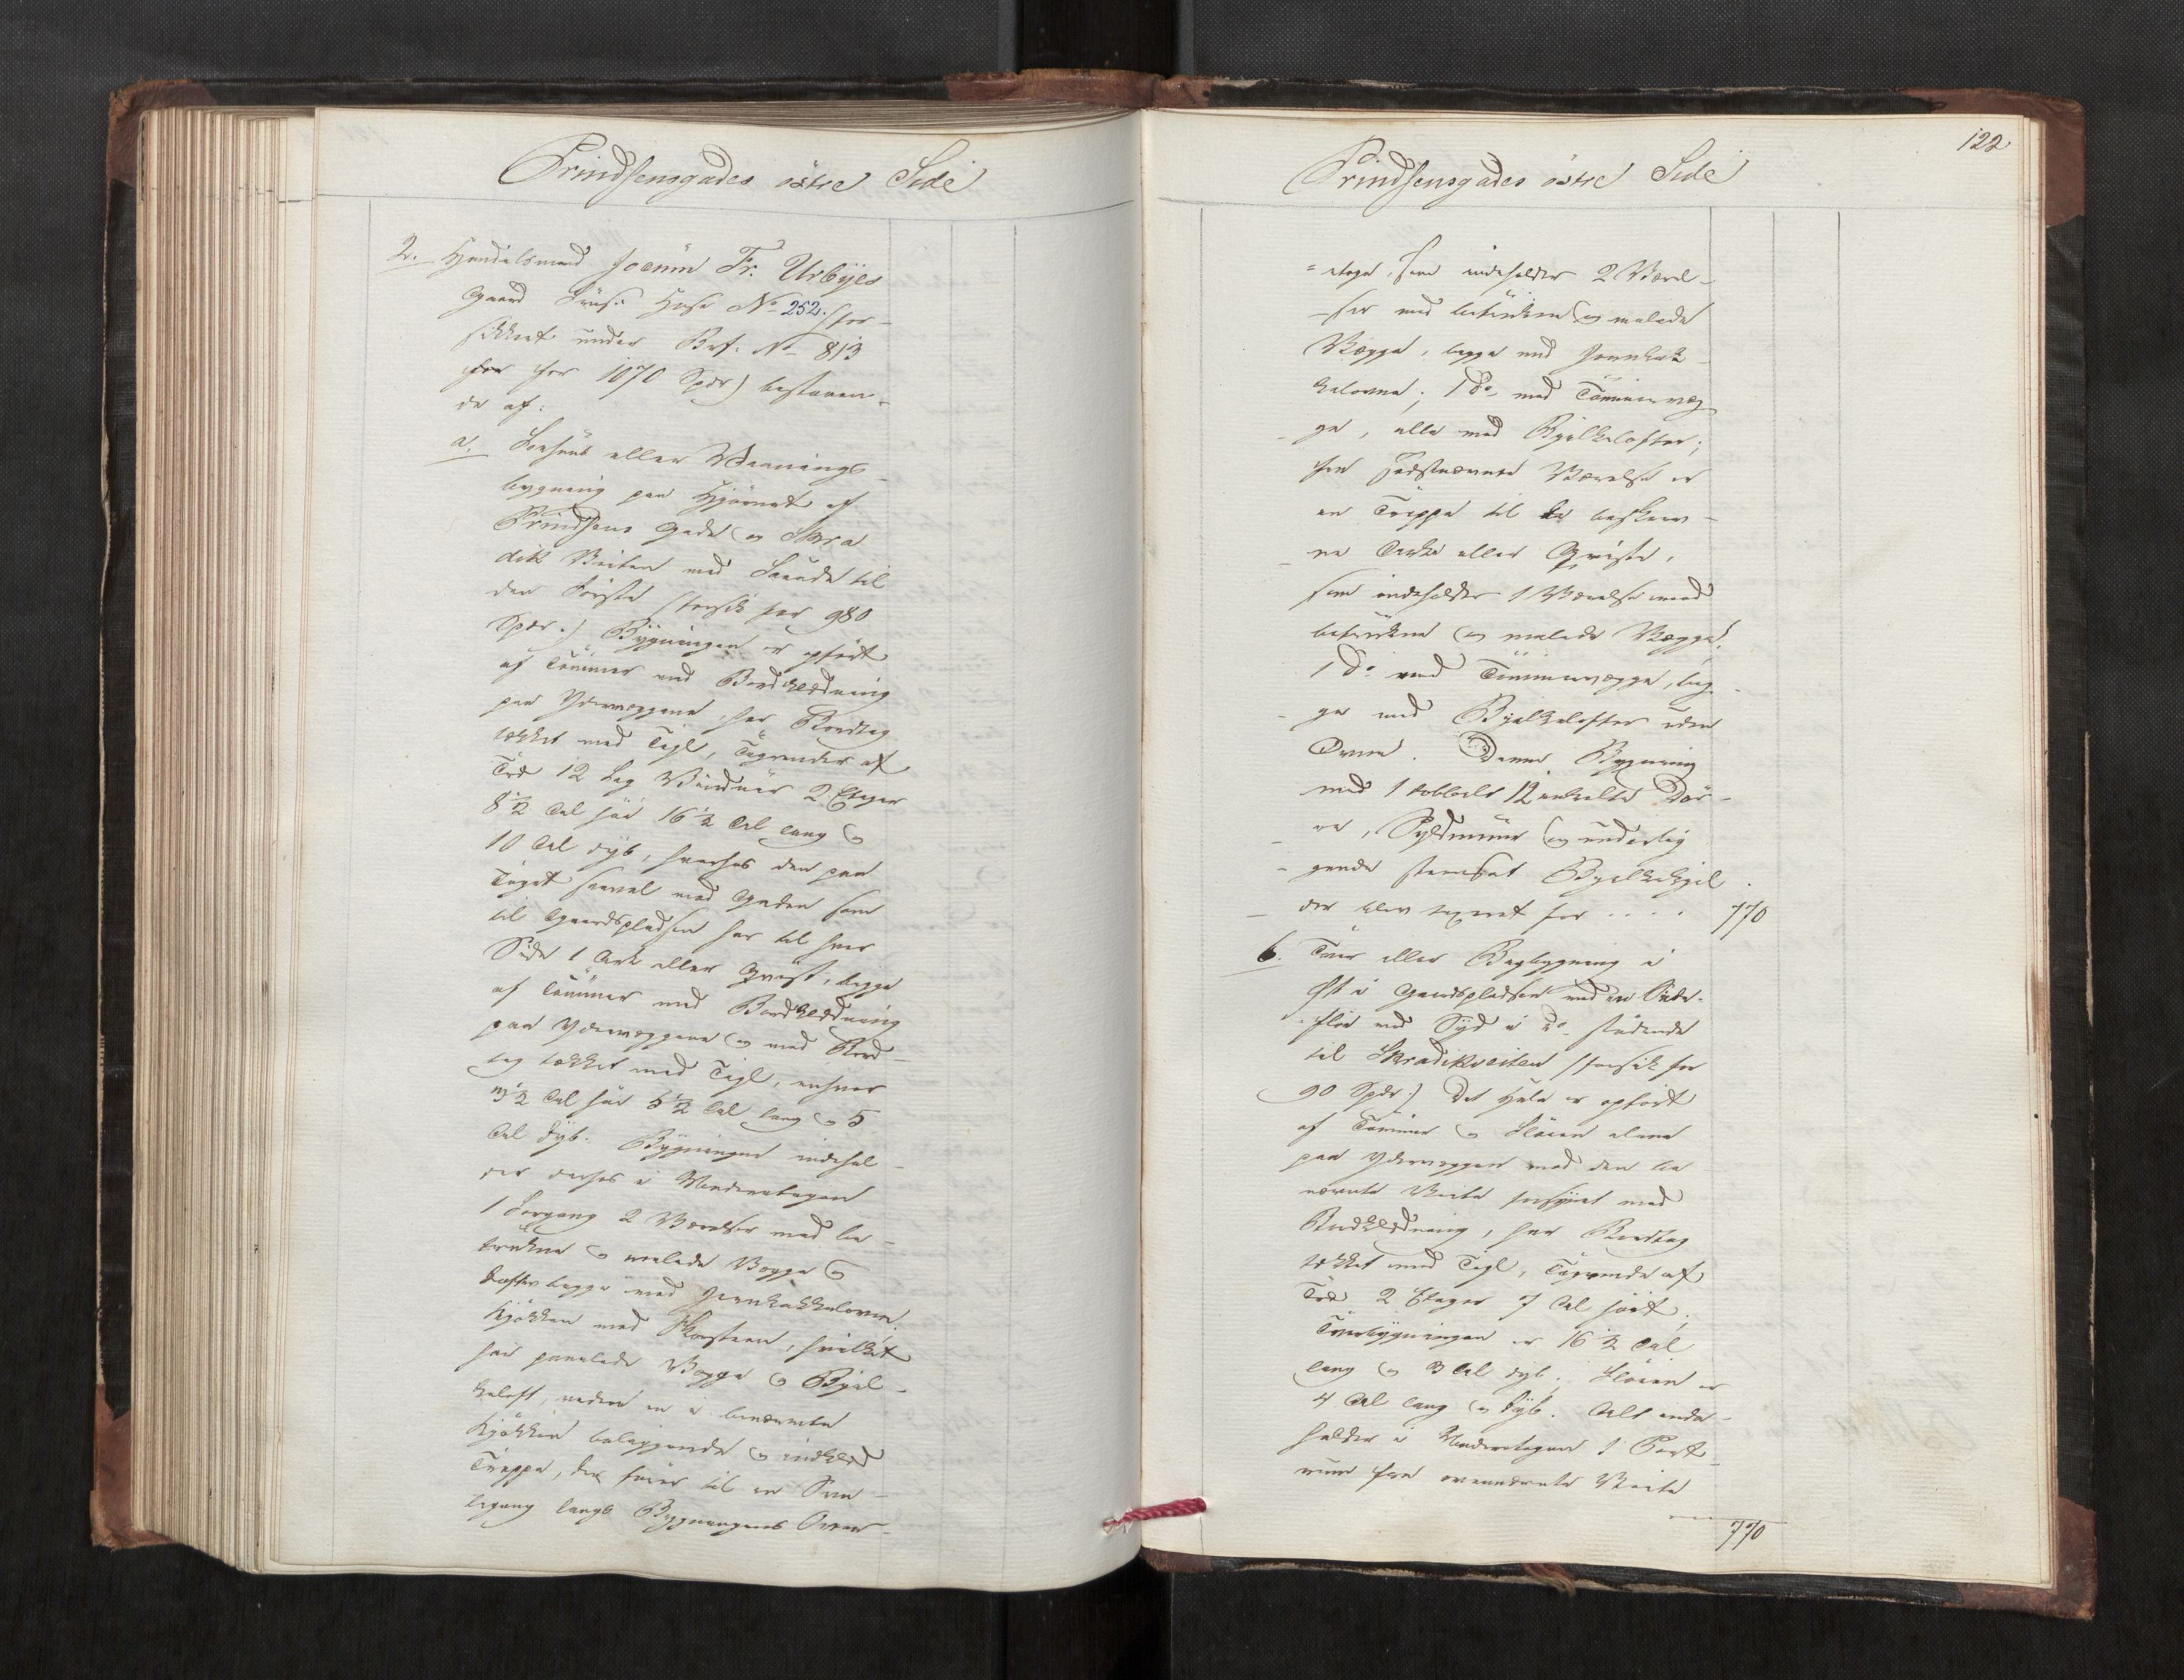 Prindsensgades östre Side
2. Handelsmand Joenim Fr. Urbÿes
Gaard Huus No 252. (for-
sikkret under Brf: No 813
for 1070 Spdr) bestaaen-
de af:
a. Forhuus eller Vaanings-
bygning paa Hjörnet af
Prindsens Gade og Skra
dik Veiten med Facade til
den Første (forsik for 980
Spdr.) Bygningen er opført
af Tømmer med Bordklædning
paa Ydervæggene, har Bordtag
tækket med Tegl, Tagrender af
Træ 12 Fag Vinduer 2 Etager
8½ Al høi 16½ Al lang og
10 Al dyb, hvorhos den paa
Taget saavel mod Gaden som
til Gaardspladsen har til hver
Side 1 Ark eller Qvist, begge
af Tømmer med Bordklædning
paa Ydervæggene og med Bord-
tag tækket med Tegl, enhver
3½ Al høi 5½ Al lang og 5
Al dyb. Bygningen indehol-
der derhos i Underetagen
1 Forgang 2 Værelser med be-
trukne og malede Vægge og
Lofter begge med Jernkakkelovne.
Kjøkken med Skorsteen, hvilket
har panelede Vægge og Bjel-
keloft, neden en i benævnte
Kjøkken beliggende og indklæd
Trappe, der fører til en Sva-
legang langs Bygningens Over-
122
Prindsensgades östre Side
= etage, som indeholder 2 Værel-
- ser med betrukne og malede
Vægge, begge med Jernkak-
kelovne; 1 do med Tømmervæg-
- ge, alle med Bjelkelofter;
fra sidstnævnte Værelse er
en Trappe til de beskrev-
- ne Arke eller Qviste,
som indeholder 1 Værelse med
betrukne og malede Vægge,
1 do med Tømmervægge, beg-
- ge med Bjelkelofter uden
Ovne. Denne Bygning
med 1 dobbelt 12 enkelte Dør-
- re, Syldmuur og underlig-
- gende steensat Bjelkekjel
- der blev taxeret for .... 770
b. Tvær eller Bagbygning i
Øst i Gaardspladsen med en Side-
fløi mod Syd i do stødende
til Skradikveiten (forsik for
90 Spdr.) Det Hele er opført
af Tømmer og Fløien alene
paa Ydervæggen mod den be
nævnte Veite forsÿnet med
Bordklædning, har Bordtag
tækket med Tegl, Tagrende af
Træ 2 Etager 7 Al høit;
Tværbygningen er 16½ Al
lang og 3 Al dyb; Fløien er
4 Al lang og dyb. Alt inde-
holder i Underetagen 1 Port-
rum fra ovennævnte Veite
770